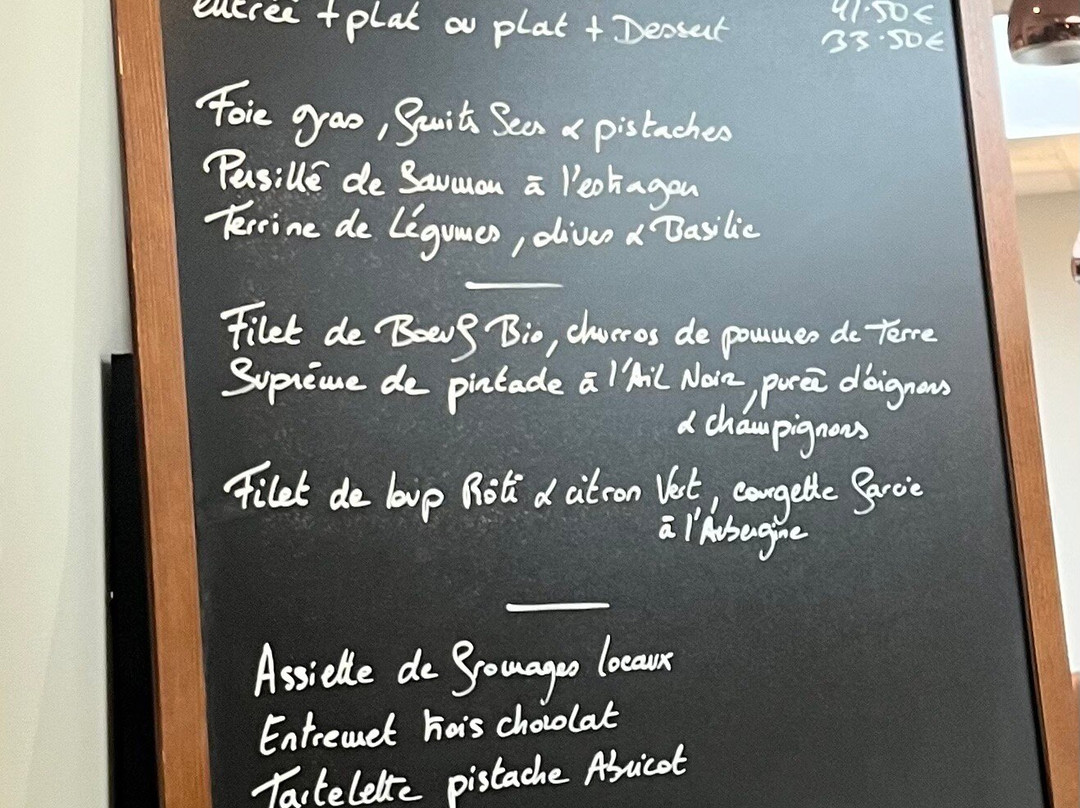 41.50€
entrée + plat ou plat + Dessert 33.50€
Foie gras, fruits Secs & pistaches
Persillé de Saumon à l'estragon
Terrine de Légumes, olives & Basilic
Filet de Boeuf Bio, churros de pommes de Terre
Suprême de pintade à l'Ail Noir, purée d'oignons
& champignons
Filet de loup Rôti & citron Vert, courgette farcie
à l'Aubergine
Assiette de fromages locaux
Entremet trois chocolat
Tartelette pistache Abricot